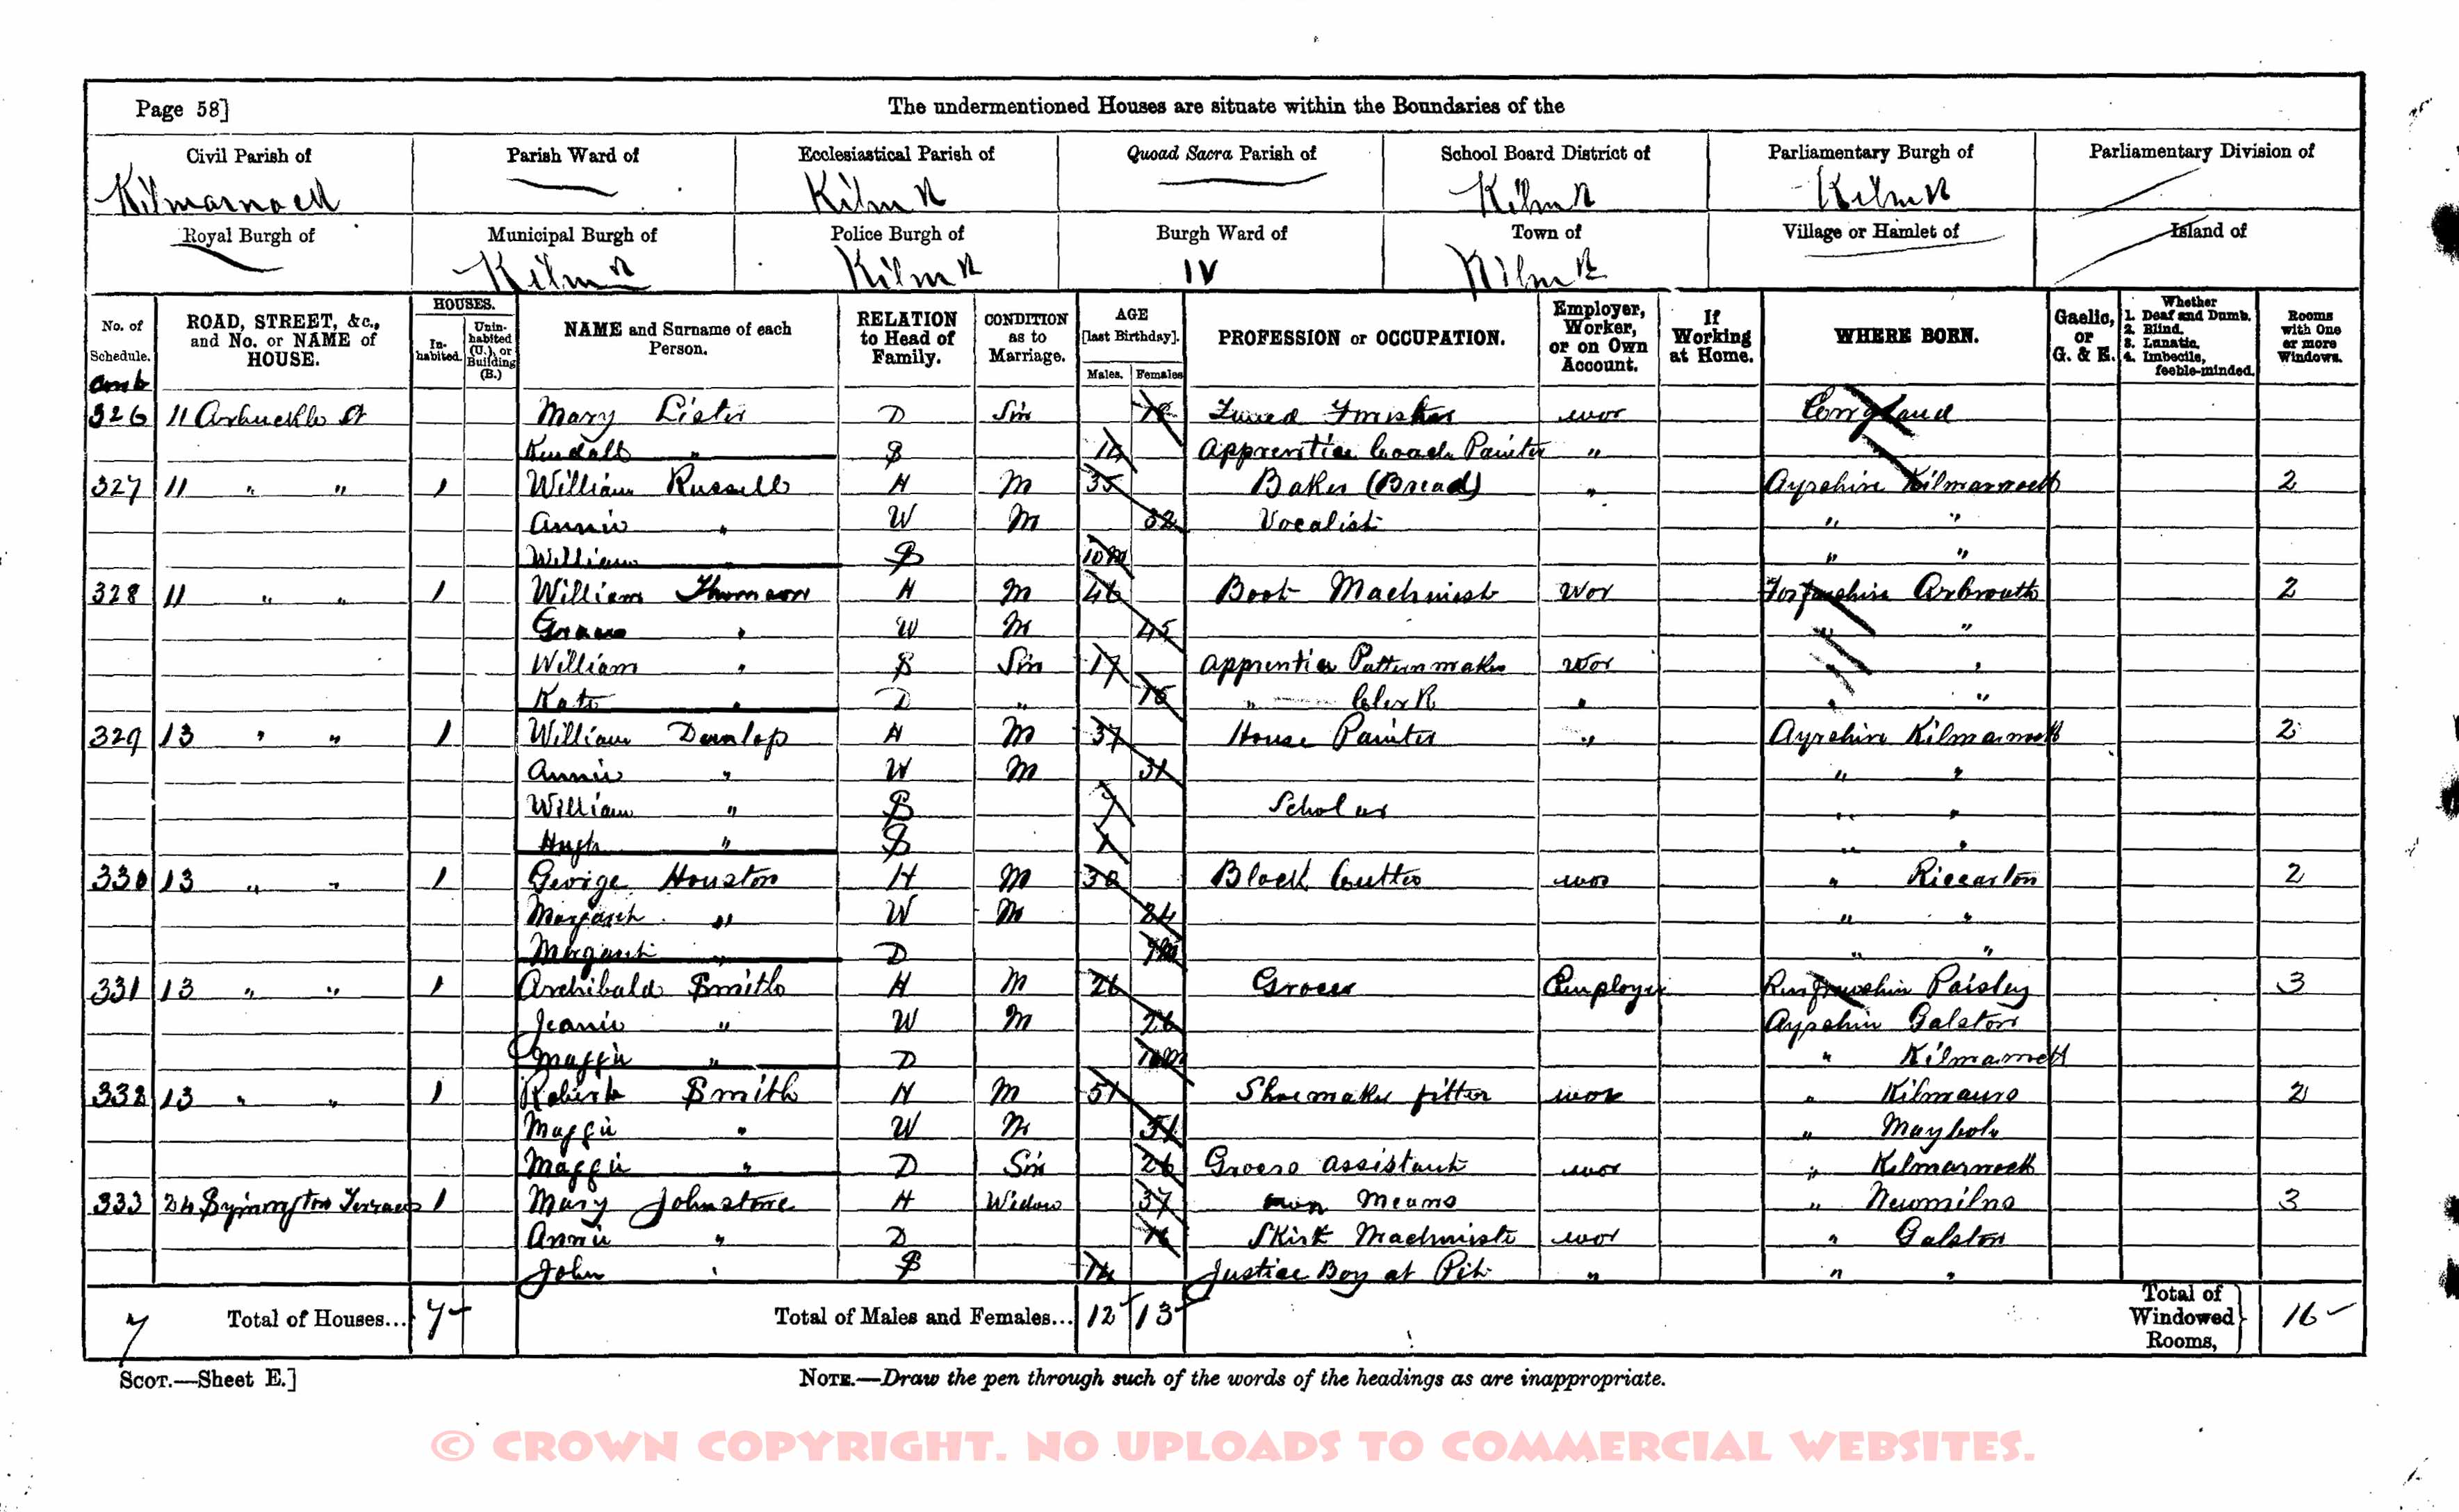 Page 58]
The undermentioned Houses are situate within the Boundaries of the
Civil Parish of Parish Ward of Ecclesiastical Parish of Quoad Sacra Parish of School Board District of Parliamentary Burgh of Parliamentary Division of
Kilmarnock Kilmk Kilmk Kilmk
Royal Burgh of Municipal Burgh of Police Burgh of Burgh Ward of Town of Village or Hamlet of Island of
Kilmk Kilmk IV Kilmk
No. of Schedule. ROAD, STREET, &c., and No. or NAME of HOUSE. HOUSES. In-habited. Unin-habited (U.), or Building (B.) NAME and Surname of each Person. RELATION to Head of Family. CONDITION as to Marriage. AGE [last Birthday]. Males. Females PROFESSION or OCCUPATION. Employer, Worker, or on Own Account. If Working at Home. WHERE BORN. Gaelic, or G. & E. Whether 1. Deaf and Dumb. 2. Blind. 3. Lunatic. 4. Imbecile, feeble-minded. Rooms with One or more Windows.
326 11 Arbuckle St Mary Lister D Sin wor England
" S 14 Apprentice Coach Painter "
327 11 " " 1 William Russell H M 35 Baker (Bread) " Ayrshire Kilmarnock 2
Annie " W M 32 Vocalist " "
William " S 10m " "
328 11 " " 1 William Thomson H M 46 Boot Machinist Wor Forfarshire Arbroath 2
Grace " W M 45 " "
William " S Sin 17 Apprentice Patternmaker Wor " "
Kate " D " " Clerk " " "
329 13 " " 1 William Dunlop H M 37 House Painter " Ayrshire Kilmarnock 2
Annie " W M 31 " "
William " S 7 Scholar " "
Hugh " S " "
330 13 " " 1 George Houston H M Block Cutter wor " Riccarton 2
Margaret " W M 24 " "
Margaret " D " "
331 13 " " 1 Archibald Smith H M 26 Grocer Employer Renfrewshire Paisley 3
Jeanie " W M 26 Ayrshire Galston
Maggie " D " Kilmarnock
332 13 " " 1 Robert Smith H M 51 Shoemaker fitter wor " Kilmaurs 2
Maggie " W M 51 " Maybole
Maggie " D Sin 26 Grocers assistant wor " Kilmarnock
333 24 Symington Terrace 1 Mary Johnstone H Widow 37 own Means " Newmilns 3
Annie " D 16 Skirt Machinist wor " Galston
John " S 14 Boy at Pit " " "
7 Total of Houses... 7 Total of Males and Females... 12 13 Total of Windowed Rooms, 16
SCOT.—Sheet E.] NOTE.—Draw the pen through such of the words of the headings as are inappropriate.
© CROWN COPYRIGHT. NO UPLOADS TO COMMERCIAL WEBSITES.